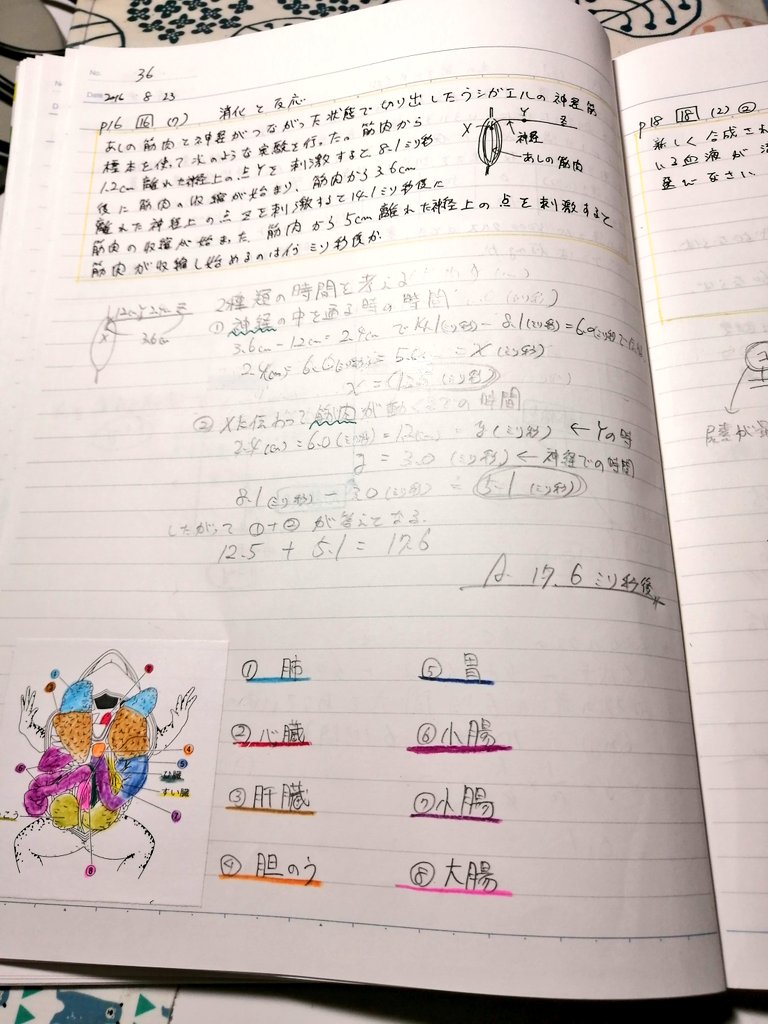 No. 36
Date 2016 8 23
P16 16 (7) 消化と反応
あしの筋肉と神経がつながった状態で切り出したウシガエルの神経筋
標本を使って次のような実験を行った。筋肉から
1.2cm 離れた神経上の点Yを刺激すると8.1ミリ秒
後に筋肉の収縮が始まり、筋肉から3.6cm
離れた神経上の点Zを刺激すると14.1ミリ秒後に
筋肉の収縮が始まった。筋肉から5cm離れた神経上の点を刺激すると
筋肉が収縮し始めるのは何ミリ秒後か
X Y Z
神経
あしの筋肉
X
3.6cm
2種類の時間を考える
① 神経の中を通る時の時間
3.6cm - 1.2cm = 2.4cm で 14.1(ミリ秒) - 8.1(ミリ秒) = 6.0(ミリ秒)
= x (ミリ秒)
x = 12.5 (ミリ秒)
② Xに伝わって筋肉が動くまでの時間
2.4(cm) = 6.0(ミリ秒) = 1.2(cm) = y (ミリ秒) ← Yの時
y = 3.0 (ミリ秒) ← 神経での時間
8.1 (ミリ秒) - 3.0 (ミリ秒) = 5.1 (ミリ秒)
したがって ①+② が答えとなる。
12.5 + 5.1 = 17.6
A. 17.6 ミリ秒後
① 肺
② 心臓
③ 肝臓
④ 胆のう
⑤ 胃
⑥ 小腸
⑦ 小腸
⑧ 大腸
すい臓
P18 18 (2) ②
新しく合成され
いる血液が
選びなさい
尿素が